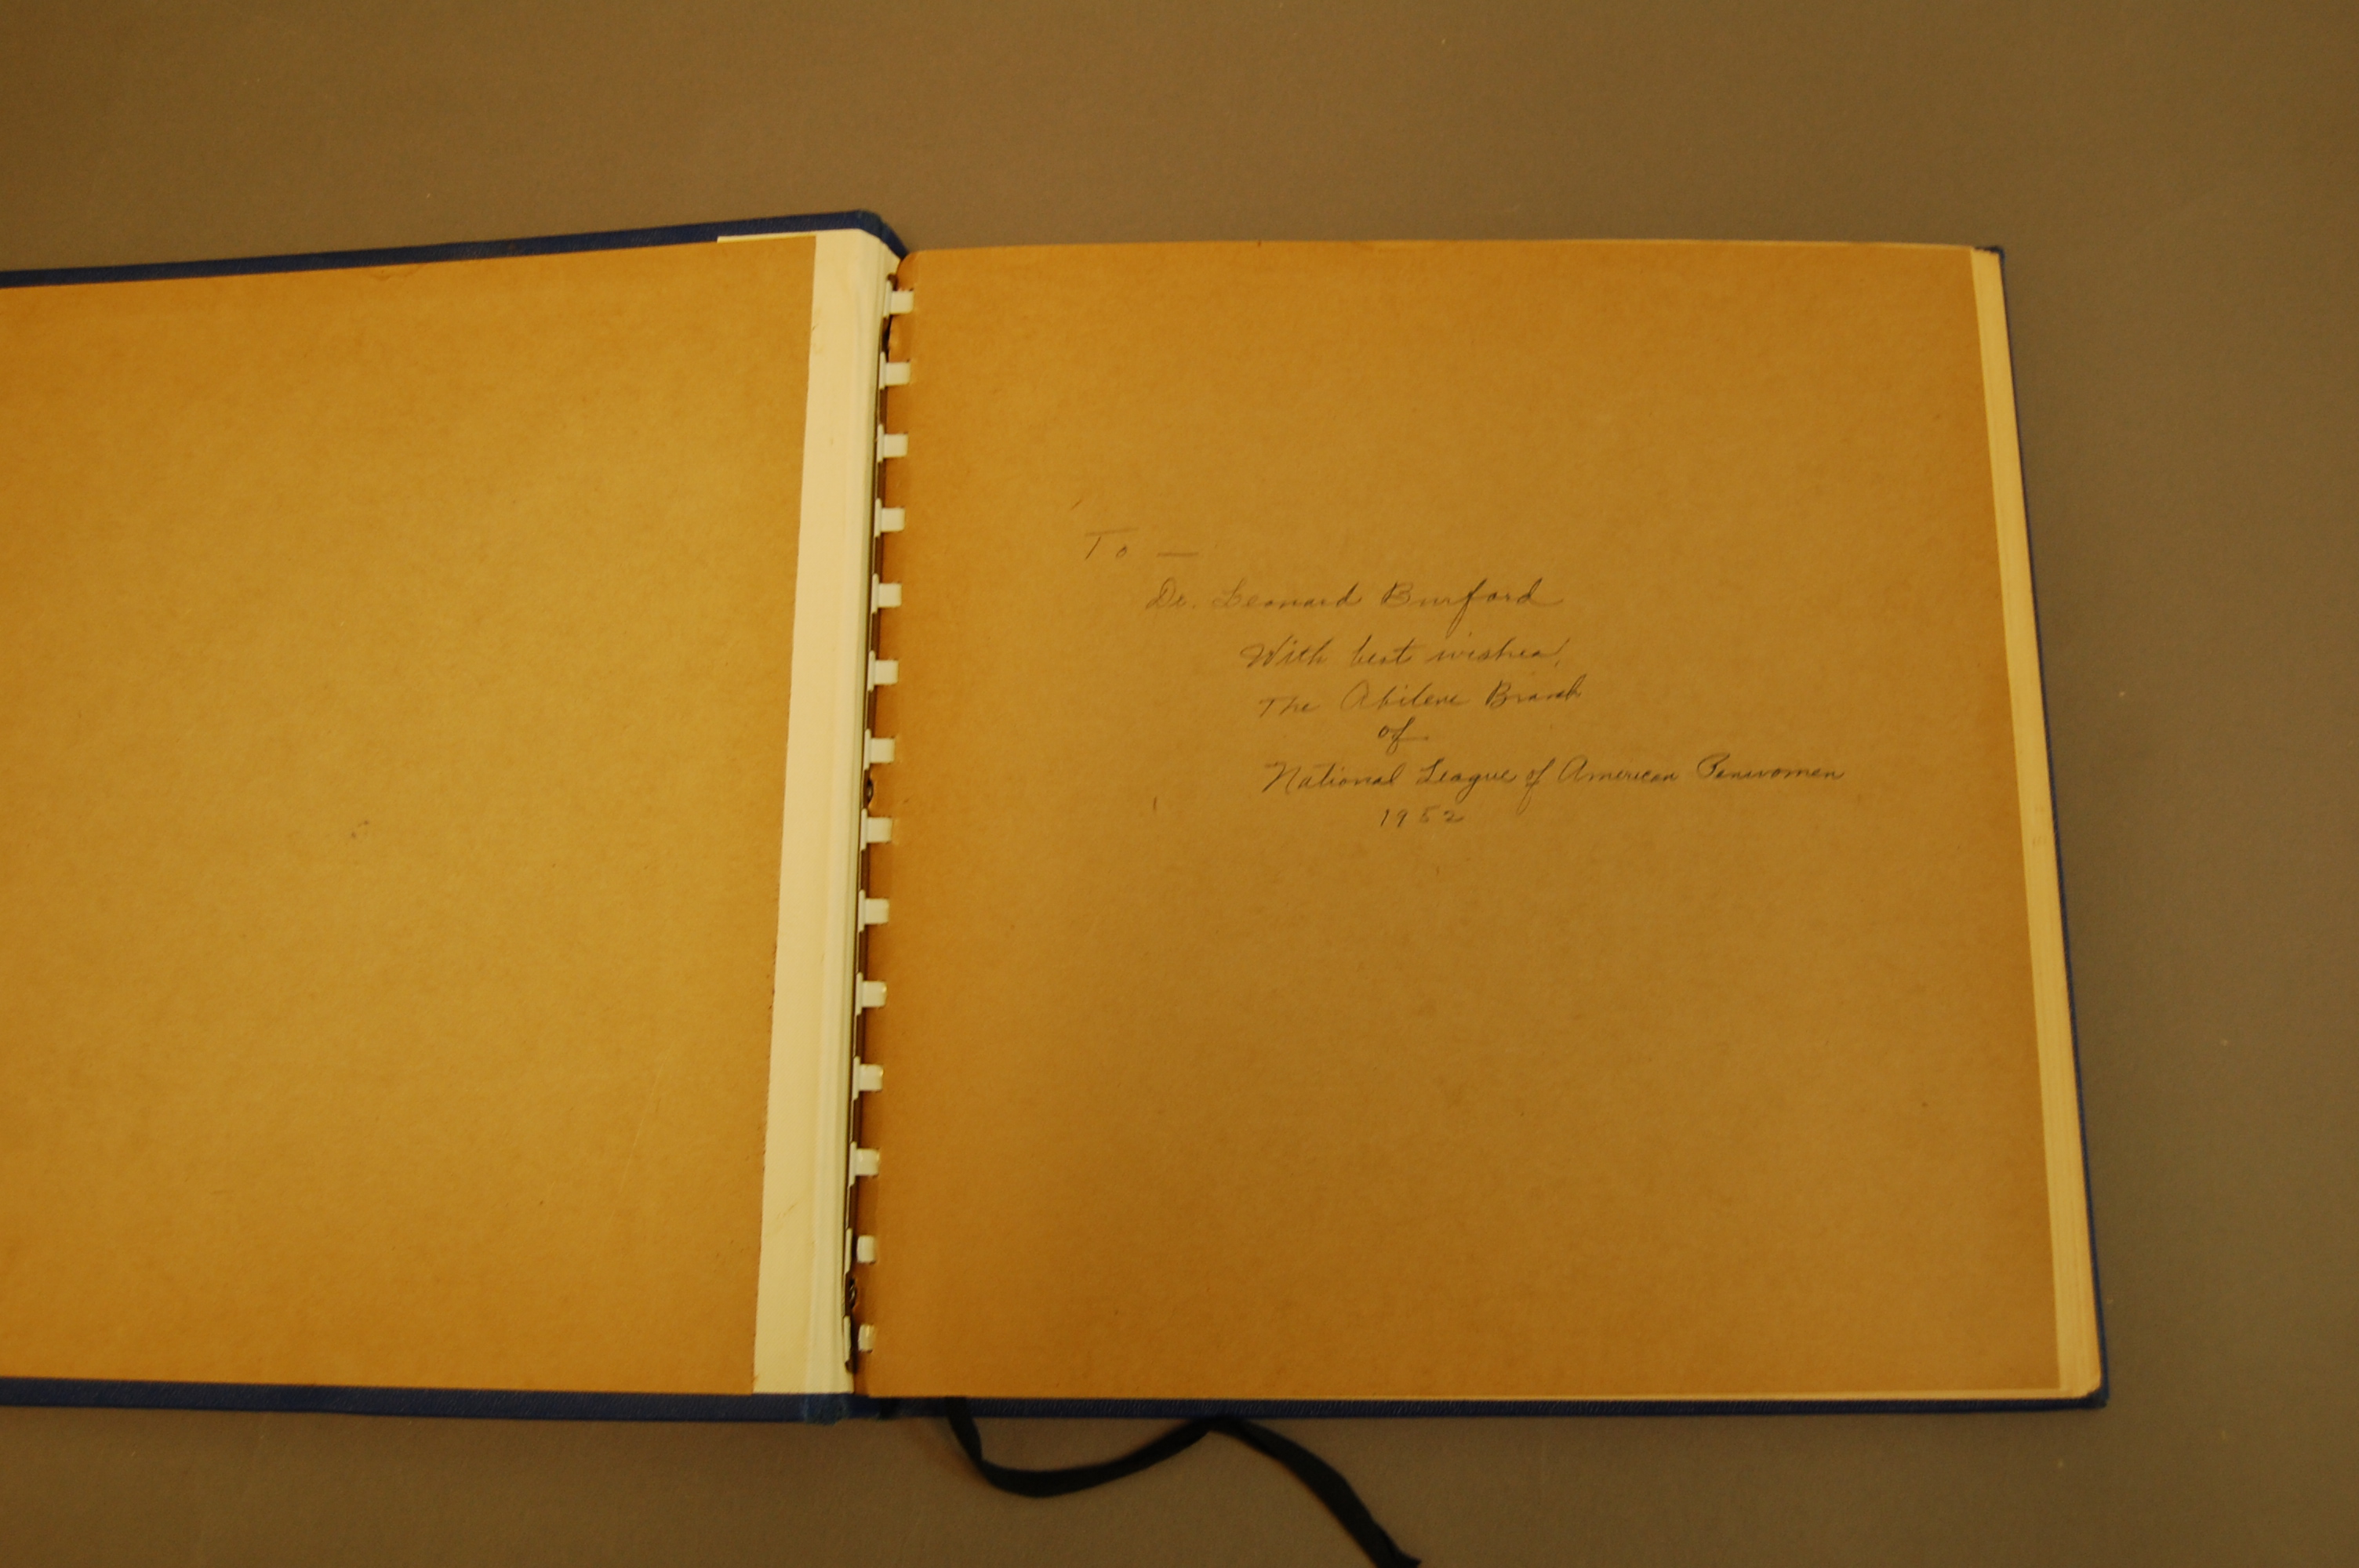 To —
Dr. Leonard Burford
With best wishes,
The Abilene Branch
of
National League of American Penwomen
1952